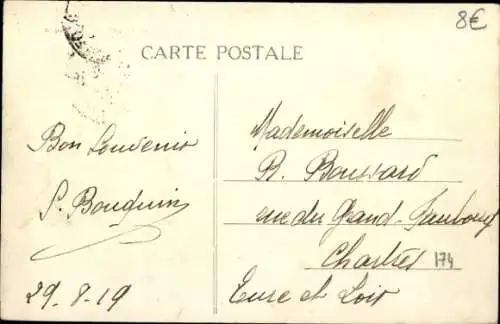 8€
CARTE POSTALE
Bon Souvenir
S. Bouquin
29-8-19
Mademoiselle
R. Boussard
rue du Grand-Faubourg
Chartres
174
Eure et Loir